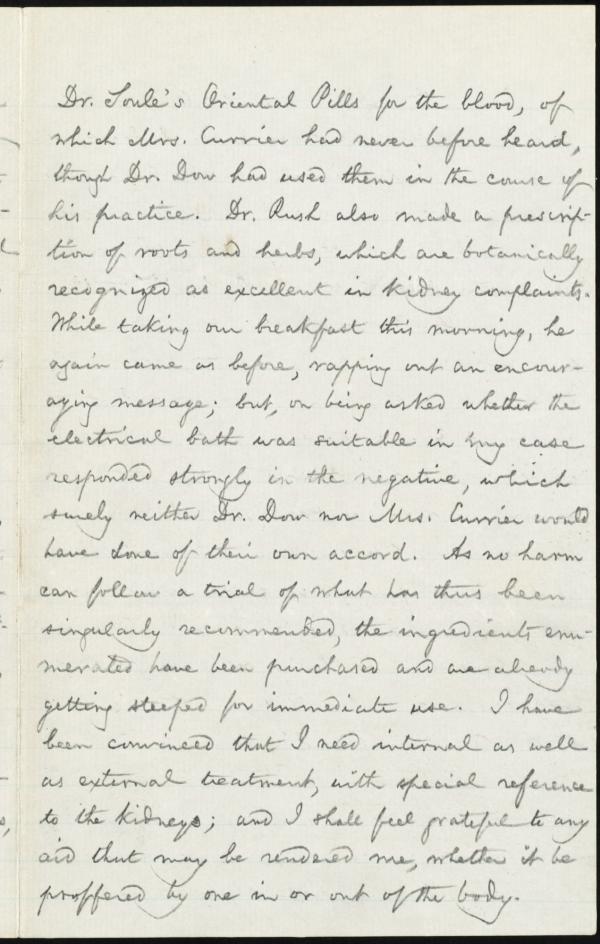 Dr. Soule's Oriental Pills for the blood, of
which Mrs. Currier had never before heard,
though Dr. Dow had used them in the course of
his practice. Dr. Rush also made a prescrip-
tion of roots and herbs, which are botanically
recognized as excellent in kidney complaints.
While taking our breakfast this morning, he
again came as before, rapping out an encour-
aging message; but, on being asked whether the
electrical bath was suitable in my case
responded strongly in the negative, which
surely neither Dr. Dow nor Mrs. Currier would
have done of their own accord. As no harm
can follow a trial of what has thus been
singularly recommended, the ingredients enu-
merated have been purchased and are already
getting steeped for immediate use. I have
been convinced that I need internal as well
as external treatment, with special reference
to the kidneys; and I shall feel grateful to any
aid that may be rendered me, whether it be
proffered by one in or out of the body.